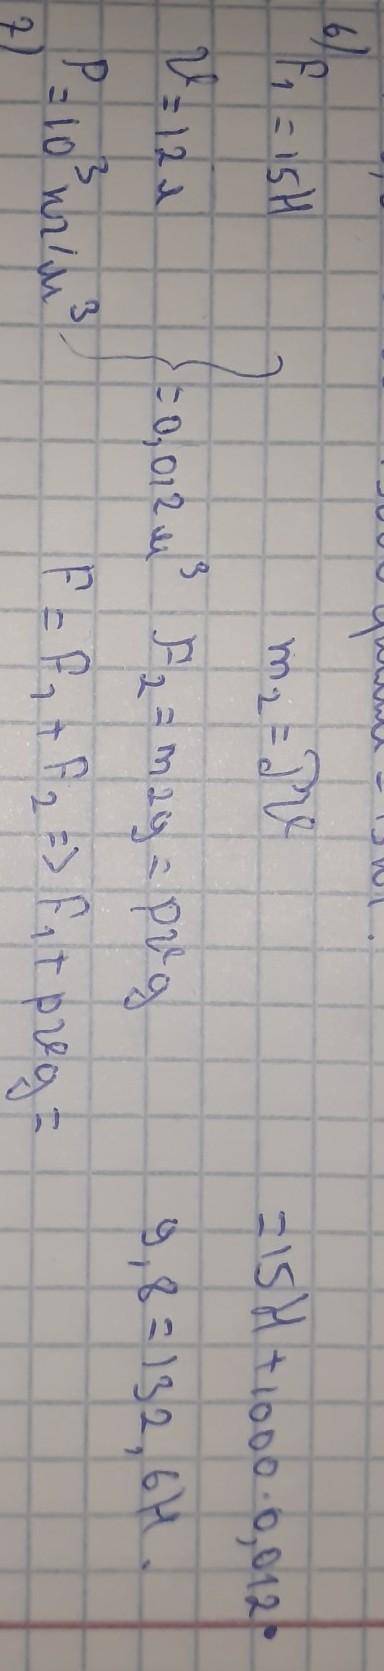 6) F₁ = 15Н
V = 12 л = 0,012 м³
ρ = 10³ кг/м³
m₂ = ρV
F₂ = m₂g = ρVg
F = F₁ + F₂ => F₁ + ρVg =
= 15Н + 1000 · 0,012 ·
9,8 = 132,6Н.
7)